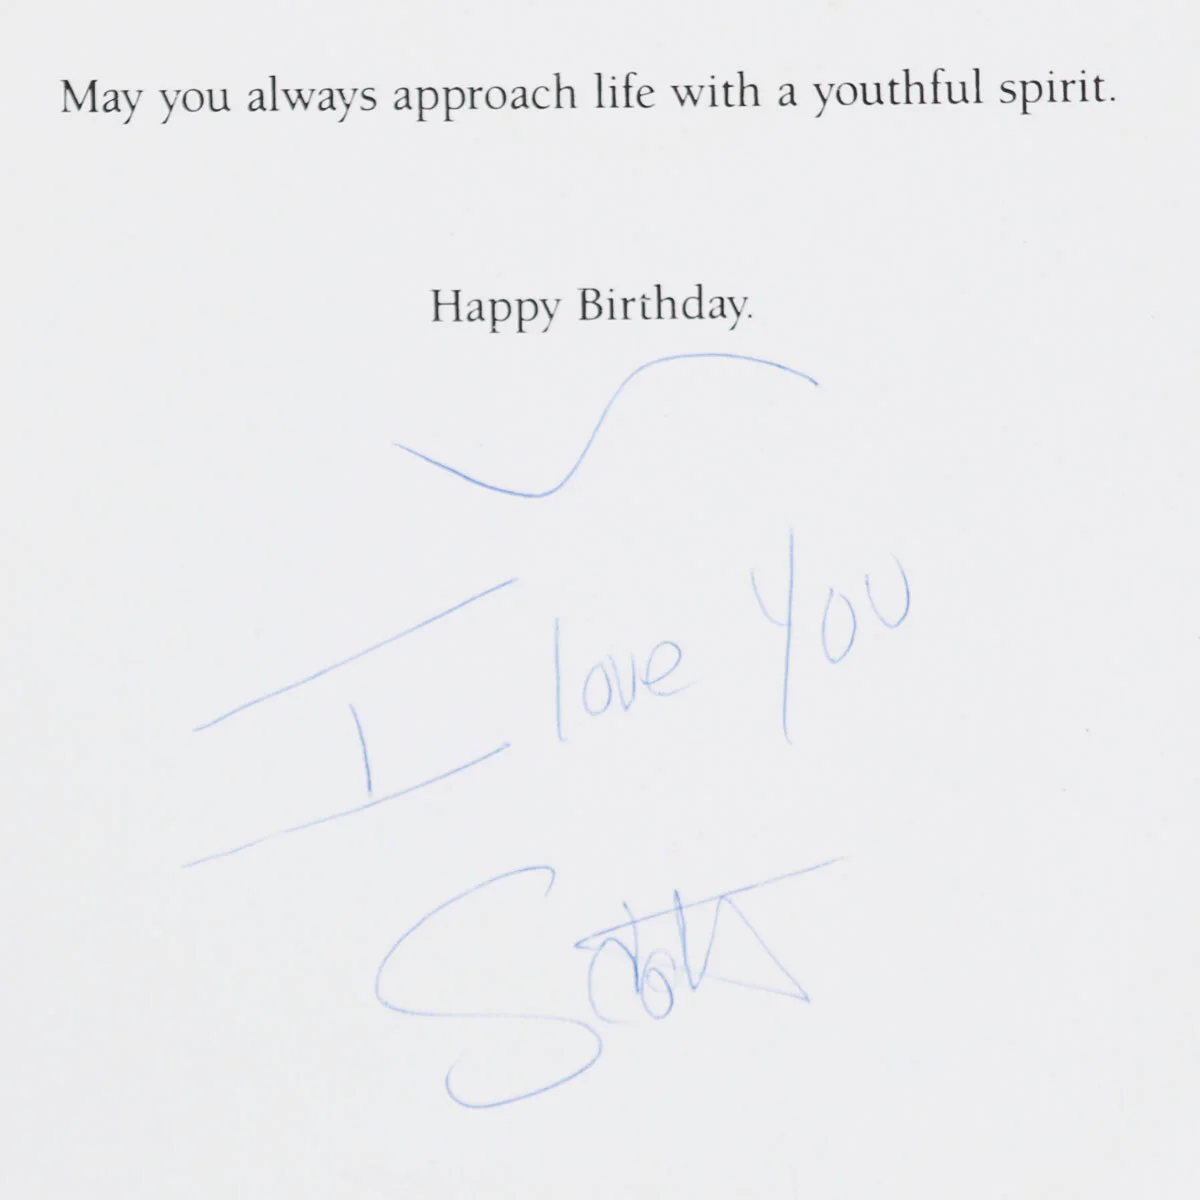 May you always approach life with a youthful spirit.
Happy Birthday.
I love You
Scott